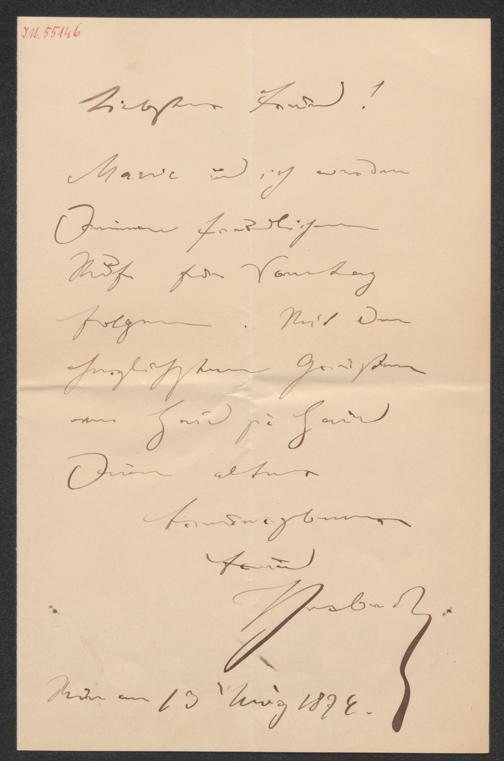 I.N. 55146
Liebster Freund!
Marie und ich werden
Deinem freundlichen
Rufe für Sonntag
folgen. Mit den
herzlichsten Grüßen
von Haus zu Haus
Dein alter
freundergebener
Freund
Wien am 13 März 1874.